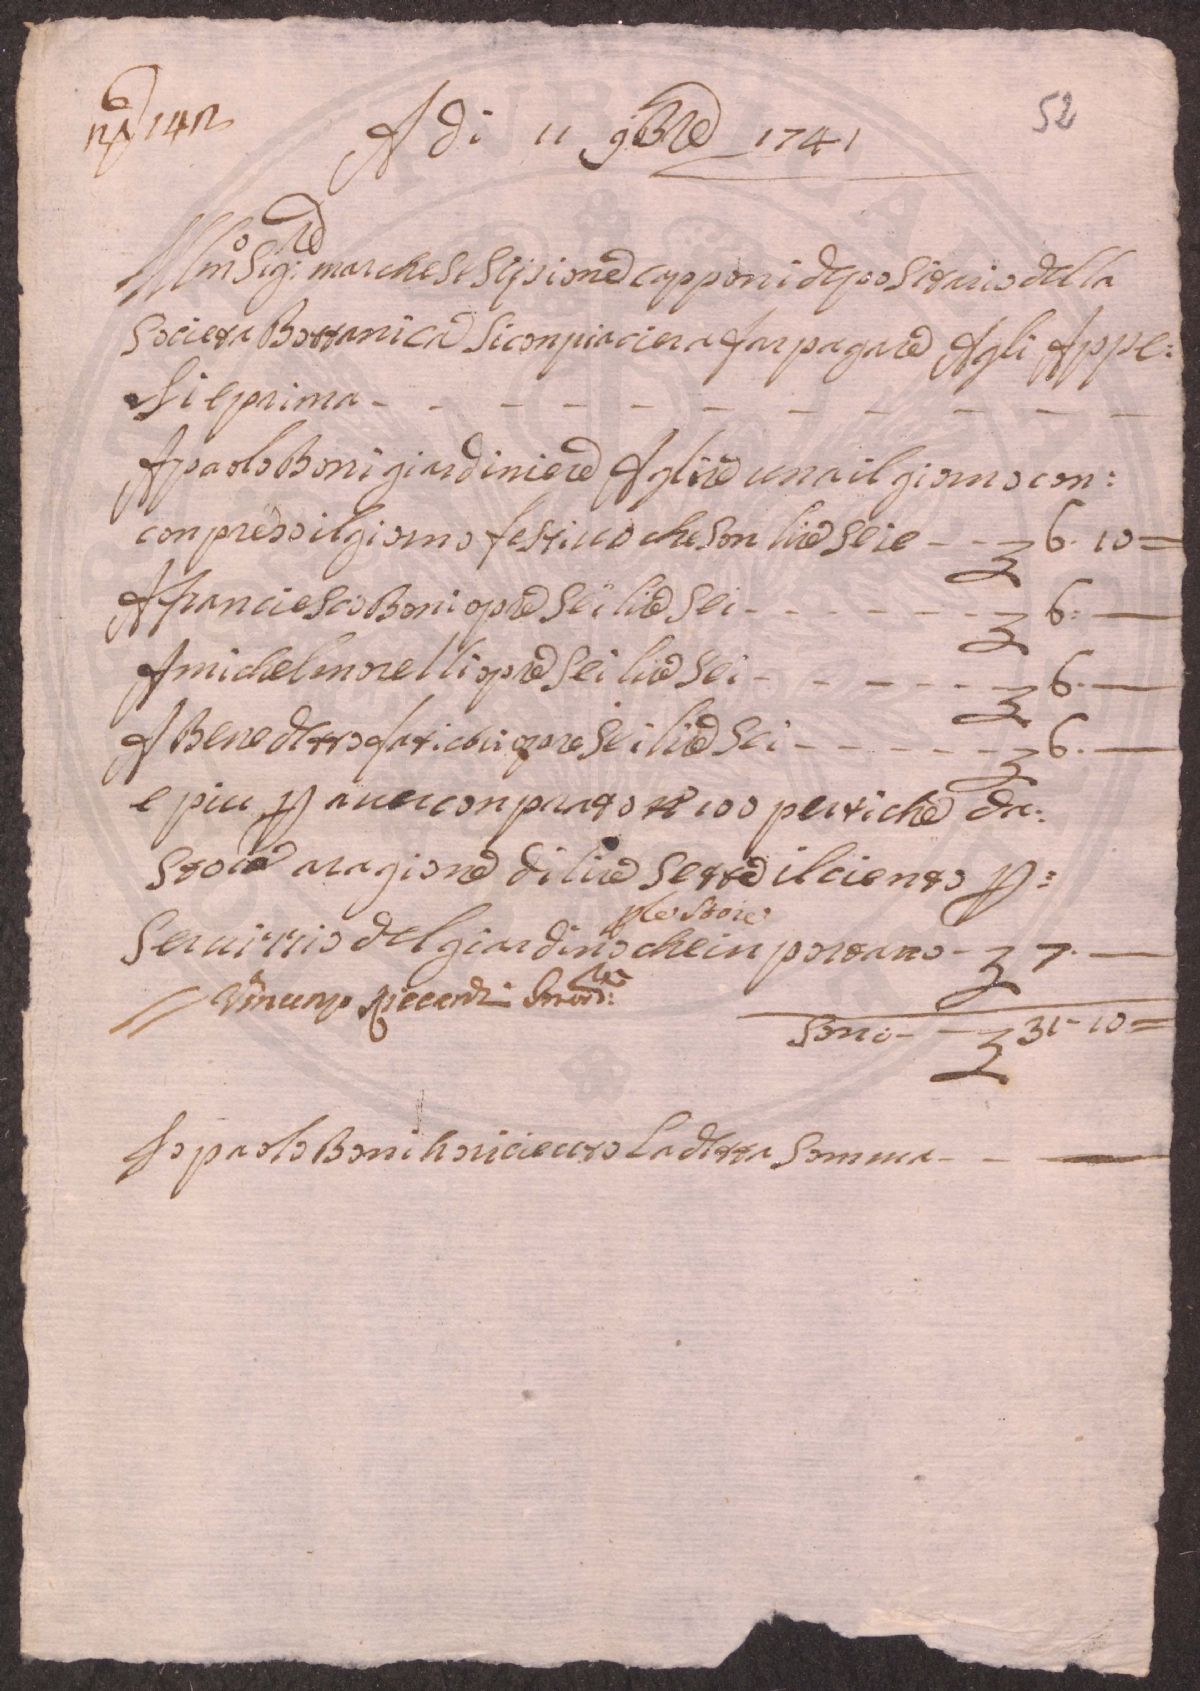 n.o 142
52
A di 11 9bre 1741
Ill.mo Sig.re marchese Sipione Capponi depositario della
Societa Bottanica Si conpiaciera far pagare Agli Appe:
Si e prima - - - - - - - - - - - -
A paolo Boni giardiniere A glire una il giorno con:
conpreso il giorno festiuo che son lire seie - - 6. 10 =
A franciesco Boni opre sei lire sei - - - - - - 6. —
A michel morelli opre sei lire sei - - - - - - 6. —
A Benedetto fatichi opre sei lire sei - - - - - - 6. —
e piu p auer conprato n.o 100 pertiche da:
Stoie a ragione di lire sette il ciento p:
p le Stoie
Seruizzio del giardino che inportano - 7. —
Vincenzo Riccardi
Sono - - 31 - 10 =
Io paolo Boni ho riceuto la detta Somma - - —